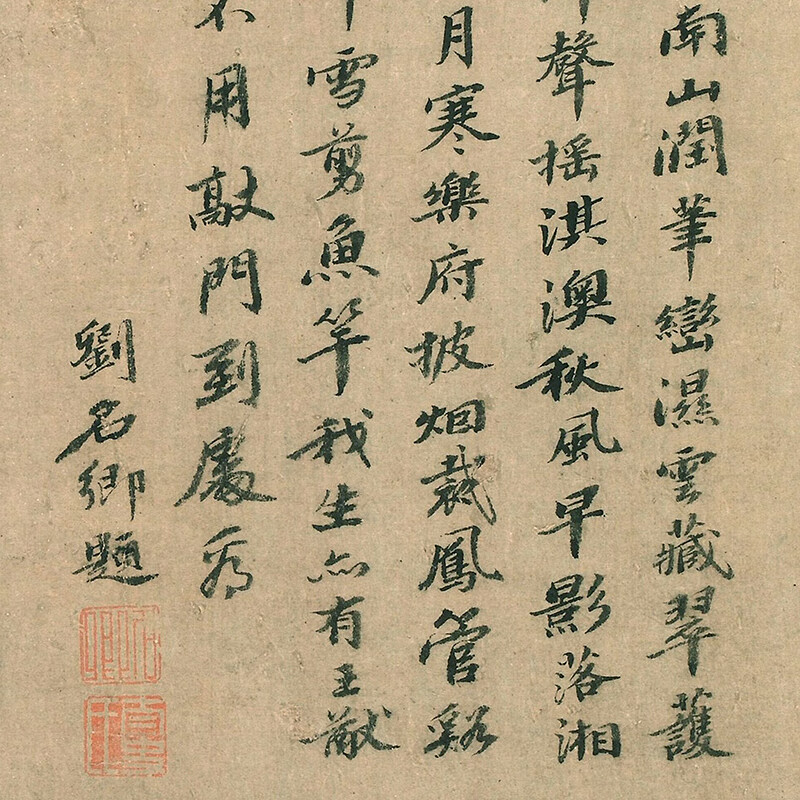 南山潤筆巒濕雲藏翠護
聲搖淇澳秋風早影落湘
月寒樂府披烟裁鳳管谿
雪剪魚竿我生亦有王猷
不用敲門到處看
劉名卿題